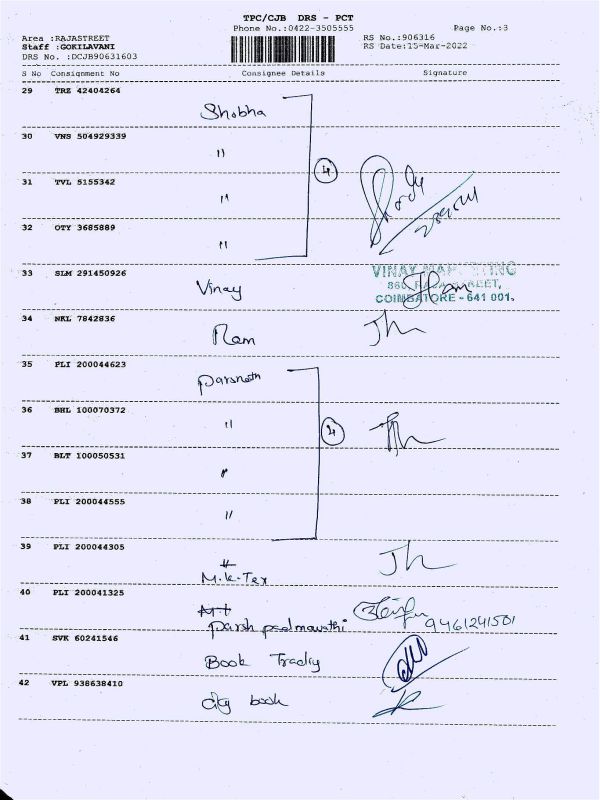 TPC/CJB DRS - PCT
Phone No.:0422-3505555
Page No.:3
Area :RAJASTREET
RS No.:906316
Staff :GOKILAVANI
RS Date:15-Mar-2022
DRS No. :DCJB90631603
S No Consignment No Consignee Details Signature
29 TRZ 42404264
Shobha
30 VNS 504929339
"
4
31 TVL 5155342
"
32 OTY 3685889
"
33 SLM 291450926
Vinay
VINAY MARKETING
COIMBATORE - 641 001.
34 NKL 7842836
Ram
35 PLI 200044623
Parsnath
36 BHL 100070372
"
4
37 BLT 100050531
"
38 PLI 200044555
"
39 PLI 200044305
M.K.Tex
40 PLI 200041325
Parsh padmavathi
9461241501
41 SVK 60241546
Book Trading
42 VPL 938638410
City book